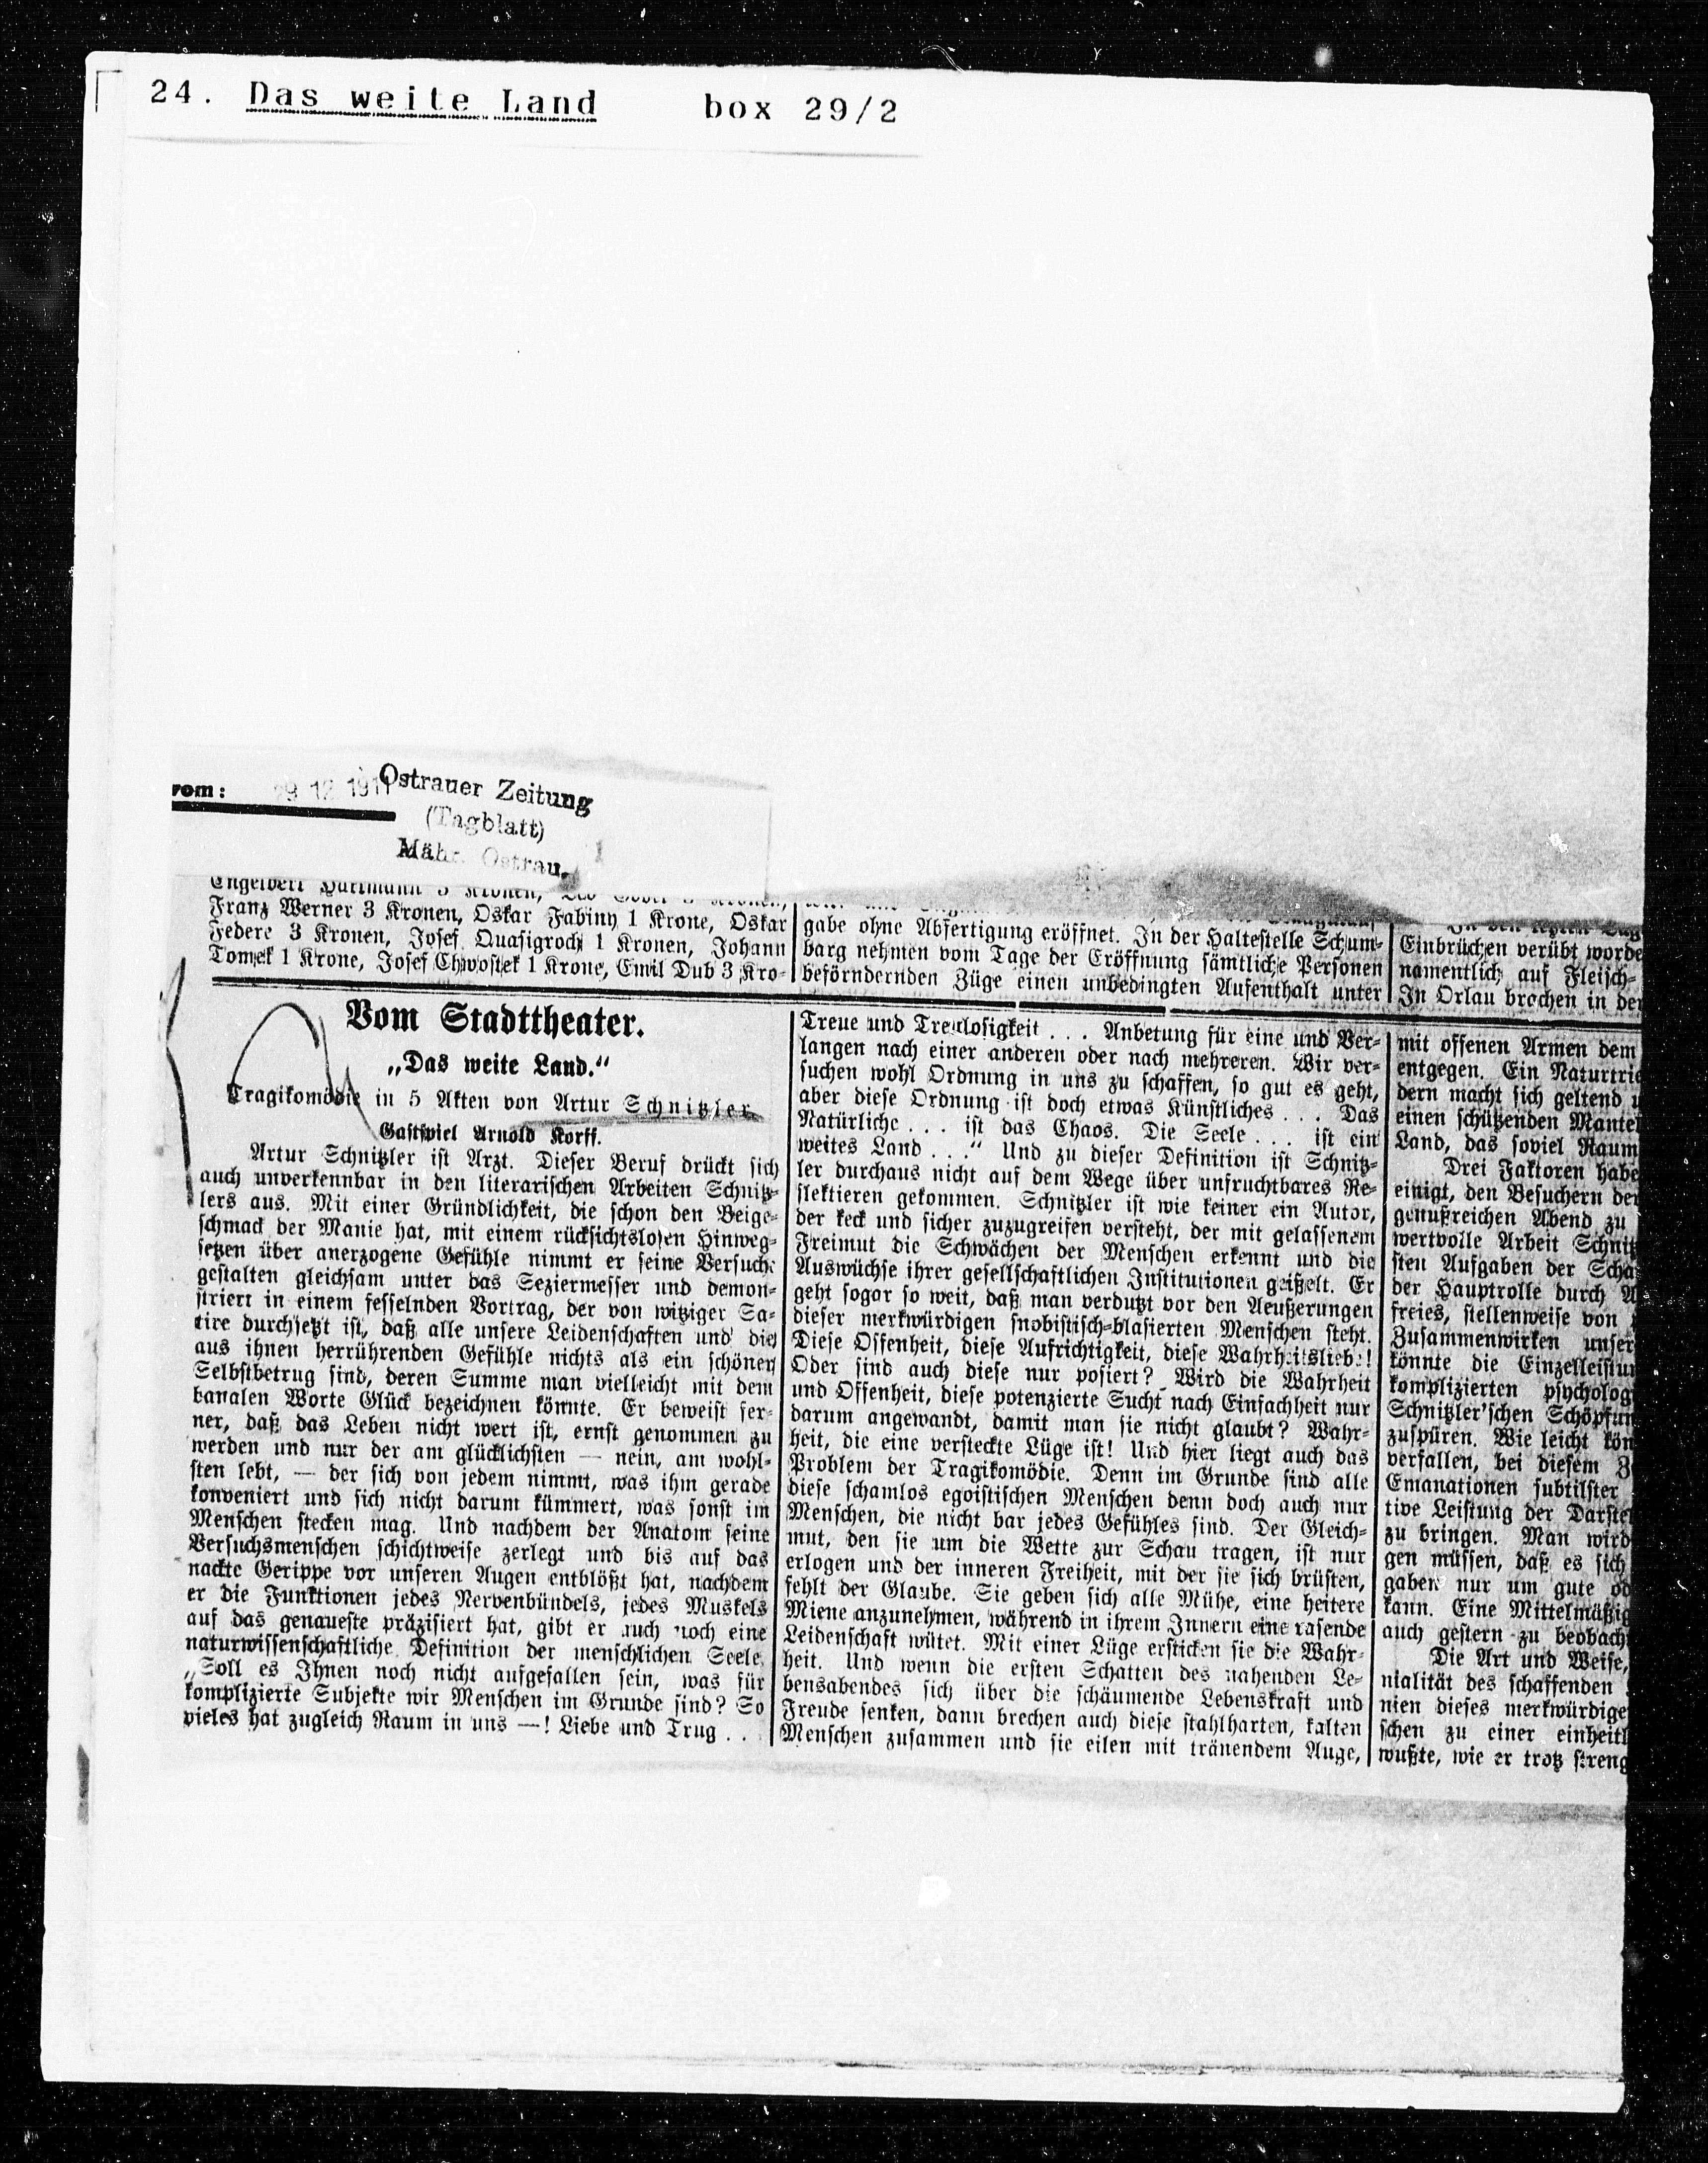 24. Das weite Land box 29/2
vom: 29 12 1911
Ostrauer Zeitung
(Tagblatt)
Mähr. Ostrau.
Franz Werner 3 Kronen, Oskar Fabiny 1 Krone, Oskar
Federe 3 Kronen, Josef Quasigroch 1 Kronen, Johann
Tomek 1 Krone, Josef Chwostek 1 Krone, Emil Dub 3 Kro-
gabe ohne Abfertigung eröffnet. In der Haltestelle Schum-
barg nehmen vom Tage der Eröffnung sämtliche Personen
befördernden Züge einen unbedingten Aufenthalt unter
In den letzten
Einbrüchen verübt worde
namentlich auf Fleisch-
In Orlau brachen in der
Vom Stadttheater.
„Das weite Land.“
Tragikomödie in 5 Akten von Artur Schnitzler
Gastspiel Arnold Korff.
Artur Schnitzler ist Arzt. Dieser Beruf drückt sich
auch unverkennbar in den literarischen Arbeiten Schnitz-
lers aus. Mit einer Gründlichkeit, die schon den Beige-
schmack der Manie hat, mit einem rücksichtslosen Hinweg-
setzen über anerzogene Gefühle nimmt er seine Versuchs
gestalten gleichsam unter das Seziermesser und demon-
striert in einem fesselnden Vortrag, der von witziger Sa-
tire durchsetzt ist, daß alle unsere Leidenschaften und die
aus ihnen herrührenden Gefühle nichts als ein schönen
Selbstbetrug sind, deren Summe man vielleicht mit dem
banalen Worte Glück bezeichnen könnte. Er beweist fer-
ner, daß das Leben nicht wert ist, ernst genommen zu
werden und nur der am glücklichsten — nein, am wohl-
sten lebt, — der sich von jedem nimmt, was ihm gerade
konveniert und sich nicht darum kümmert, was sonst im
Menschen stecken mag. Und nachdem der Anatom seine
Versuchsmenschen schichtweise zerlegt und bis auf das
nackte Gerippe vor unseren Augen entblößt hat, nachdem
er die Funktionen jedes Nervenbündels, jedes Muskels
auf das genaueste präzisiert hat, gibt er auch noch eine
naturwissenschaftliche Definition der menschlichen Seele.
„Soll es Ihnen noch nicht aufgefallen sein, was für
komplizierte Subjekte wir Menschen im Grunde sind? So
vieles hat zugleich Raum in uns —! Liebe und Trug . .
Treue und Treulosigkeit . . . Anbetung für eine und Ver-
langen nach einer anderen oder nach mehreren. Wir ver-
suchen wohl Ordnung in uns zu schaffen, so gut es geht,
aber diese Ordnung ist doch etwas Künstliches . . . Das
Natürliche . . . ist das Chaos. Die Seele . . . ist ein
weites Land . . .“ Und zu dieser Definition ist Schnitz-
ler durchaus nicht auf dem Wege über unfruchtbares Re-
flektieren gekommen. Schnitzler ist wie keiner ein Autor,
der keck und sicher zuzugreifen versteht, der mit gelassenem
Freimut die Schwächen der Menschen erkennt und die
Auswüchse ihrer gesellschaftlichen Institutionen geißelt. Er
geht sogar so weit, daß man verdutzt vor den Aeußerungen
dieser merkwürdigen snobistisch-blasierten Menschen steht.
Diese Offenheit, diese Aufrichtigkeit, diese Wahrheitsliebe!
Oder sind auch diese nur posiert? Wird die Wahrheit
und Offenheit, diese potenzierte Sucht nach Einfachheit nur
darum angewandt, damit man sie nicht glaubt? Wahr-
heit, die eine versteckte Lüge ist! Und hier liegt auch das
Problem der Tragikomödie. Denn im Grunde sind alle
diese schamlos egoistischen Menschen denn doch auch nur
Menschen, die nicht bar jedes Gefühles sind. Der Gleich-
mut, den sie um die Wette zur Schau tragen, ist nur
erlogen und der inneren Freiheit, mit der sie sich brüsten,
fehlt der Glaube. Sie geben sich alle Mühe, eine heitere
Miene anzunehmen, während in ihrem Innern eine rasende
Leidenschaft wütet. Mit einer Lüge ersticken sie die Wahr-
heit. Und wenn die ersten Schatten des nahenden Le-
bensabendes sich über die schäumende Lebenskraft und
Freude senken, dann brechen auch diese stahlharten, kalten
Menschen zusammen und sie eilen mit tränendem Auge,
mit offenen Armen dem
entgegen. Ein Naturtrie
dern macht sich geltend u
einen schützenden Mantel
Land, das soviel Raum
Drei Faktoren habe
einigt, den Besuchern der
genußreichen Abend zu
wertvolle Arbeit Schnitz
sten Aufgaben der Scha
der Hauptrolle durch A
freies, stellenweise von
Zusammenwirken unser
könnte die Einzelleistun
komplizierten psycholog
Schnitzler'schen Schöpfun
zuspüren. Wie leicht kön
verfallen, bei diesem Z
Emanationen subtilster
tive Leistung der Darstel
zu bringen. Man wird
gen müssen, daß es sich
gaben nur um gute od
kann. Eine Mittelmäßig
auch gestern zu beobach
Die Art und Weise,
nialität des schaffenden
nien dieses merkwürdige
schen zu einer einheitl
wußte, wie er trotz streng